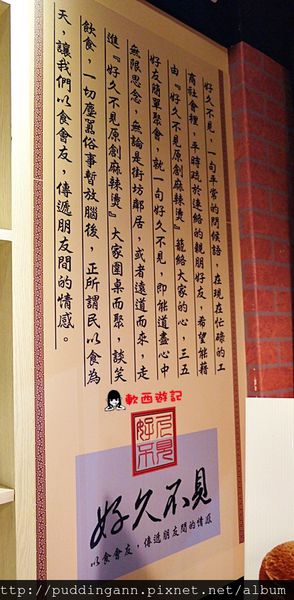 好久不見，一句平常的問候語，在現在忙碌的工
商社會裡，平時疏於連絡的親朋好友，希望能藉
由『好久不見原創麻辣燙』籠絡大家的心，三五
好友簡單聚會，就一句好久不見，即能道盡心中
無限思念，無論是街坊鄰居，或者遠道而來，走
進『好久不見原創麻辣燙』大家圍桌而聚，談笑
飲食，一切塵囂俗事暫放腦後，正所謂民以食為
天，讓我們以食會友，傳遞朋友間的情感。
軟西遊記
好久
不見
好久不見
以食會友，傳遞朋友間的情感
http://puddingann.pixnet.net/album